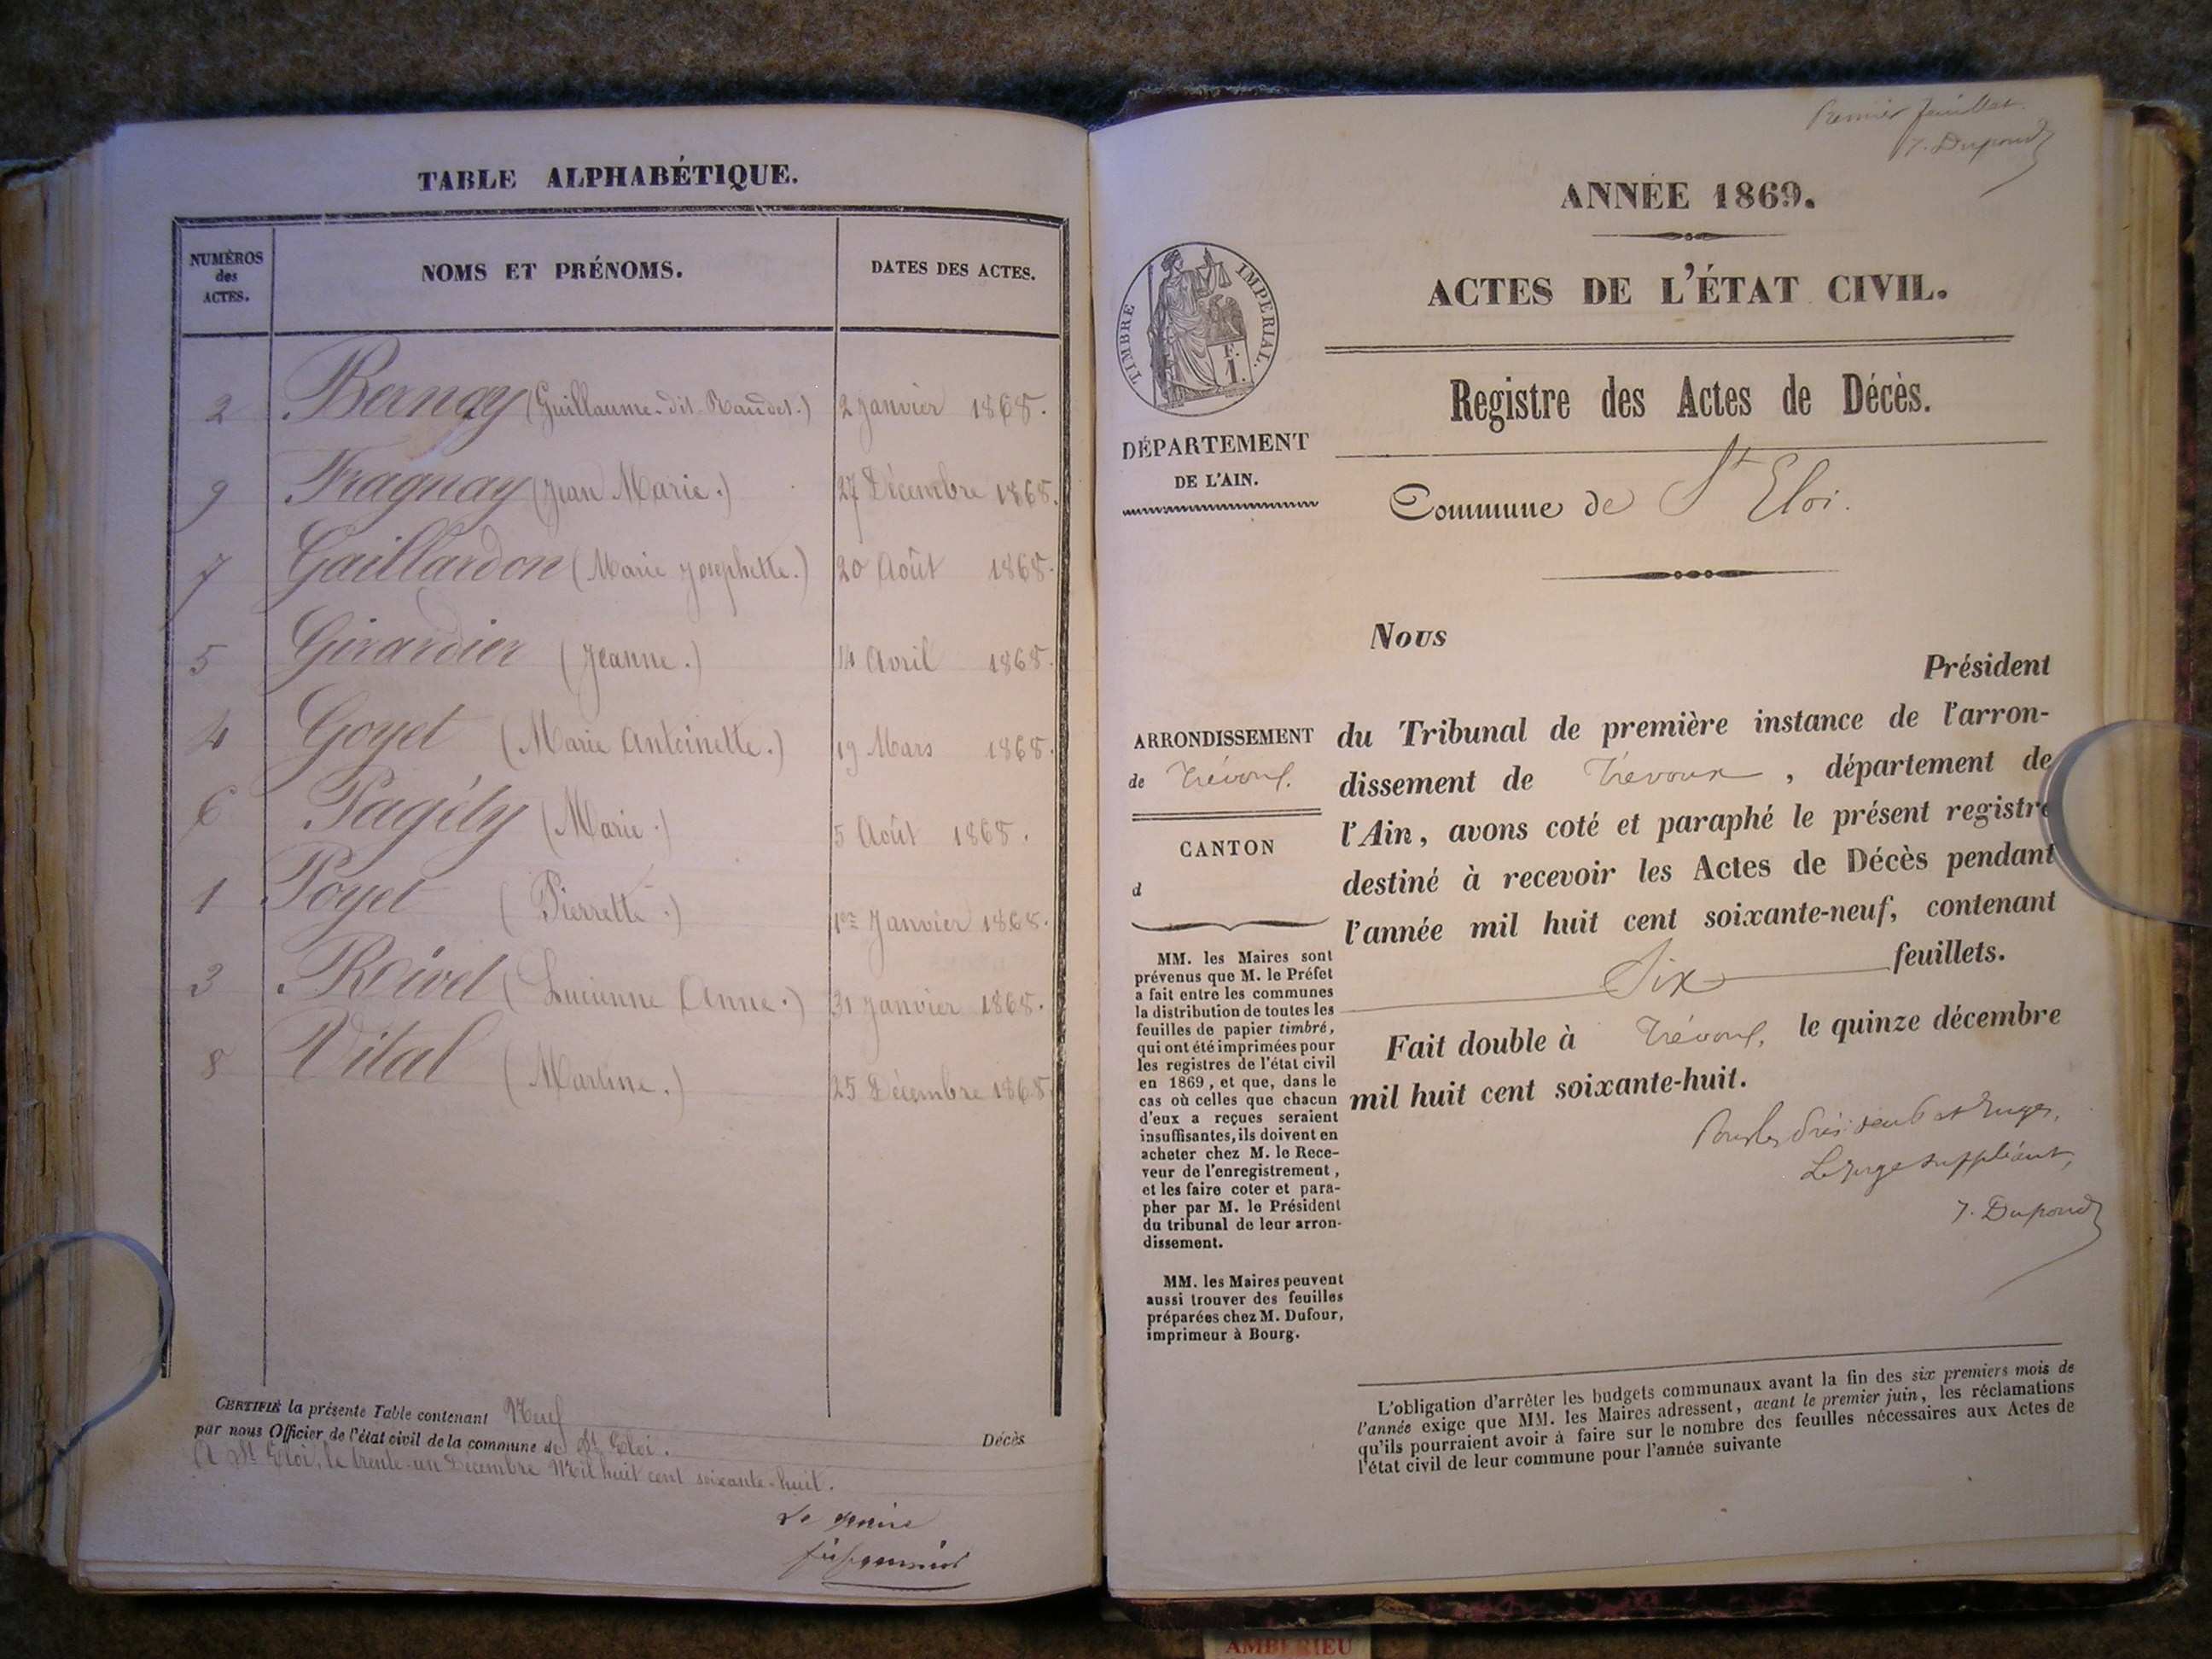 TABLE ALPHABÉTIQUE.
NUMÉROS des ACTES.
NOMS ET PRÉNOMS.
DATES DES ACTES.
2 Bernay (Guillaume dit Baudet.) 2 Janvier 1868.
9 Fragnay (Jean Marie.) 27 Décembre 1868.
7 Gaillardon (Marie Josephette.) 20 Août 1868.
5 Girardier (Jeanne.) 14 Avril 1868.
4 Goyet (Marie Antoinette.) 19 Mars 1868.
6 Pagély (Marie.) 5 Août 1868.
1 Poyet (Pierrette.) 1er Janvier 1868.
3 Rivel (Lucienne Anne.) 31 Janvier 1868.
8 Vital (Martine.) 25 Décembre 1868.
CERTIFIÉ la présente Table contenant Neuf Décès
par nous Officier de l'état civil de la commune de St Eloi.
A St Eloi, le trente-un Décembre Mil huit cent soixante-huit.
Le maire
Premier feuillet.
J. Dupond
ANNÉE 1869.
ACTES DE L'ÉTAT CIVIL.
TIMBRE IMPERIAL.
F.
1.
Registre des Actes de Décès.
DÉPARTEMENT
DE L'AIN.
Commune de St Eloi.
Nous
Président
du Tribunal de première instance de l'arron-
dissement de Trévoux, département de
l'Ain, avons coté et paraphé le présent registre
destiné à recevoir les Actes de Décès pendant
l'année mil huit cent soixante-neuf, contenant
Six feuillets.
Fait double à Trévoux, le quinze décembre
mil huit cent soixante-huit.
Le juge suppléant,
J. Dupond
ARRONDISSEMENT
de Trévoux.
CANTON
d
MM. les Maires sont
prévenus que M. le Préfet
a fait entre les communes
la distribution de toutes les
feuilles de papier timbré,
qui ont été imprimées pour
les registres de l'état civil
en 1869, et que, dans le
cas où celles que chacun
d'eux a reçues seraient
insuffisantes, ils doivent en
acheter chez M. le Rece-
veur de l'enregistrement,
et les faire coter et para-
pher par M. le Président
du tribunal de leur arron-
dissement.
MM. les Maires peuvent
aussi trouver des feuilles
préparées chez M. Dufour,
imprimeur à Bourg.
L'obligation d'arrêter les budgets communaux avant la fin des six premiers mois de
l'année exige que MM. les Maires adressent, avant le premier juin, les réclamations
qu'ils pourraient avoir à faire sur le nombre des feuilles nécessaires aux Actes de
l'état civil de leur commune pour l'année suivante
AMBERIEU